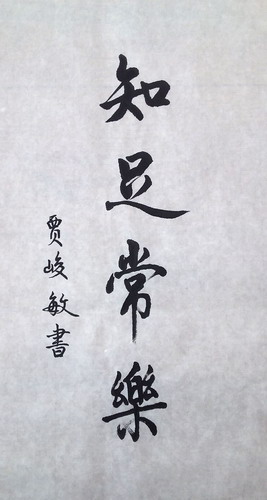 知足常樂
贾峻敏書